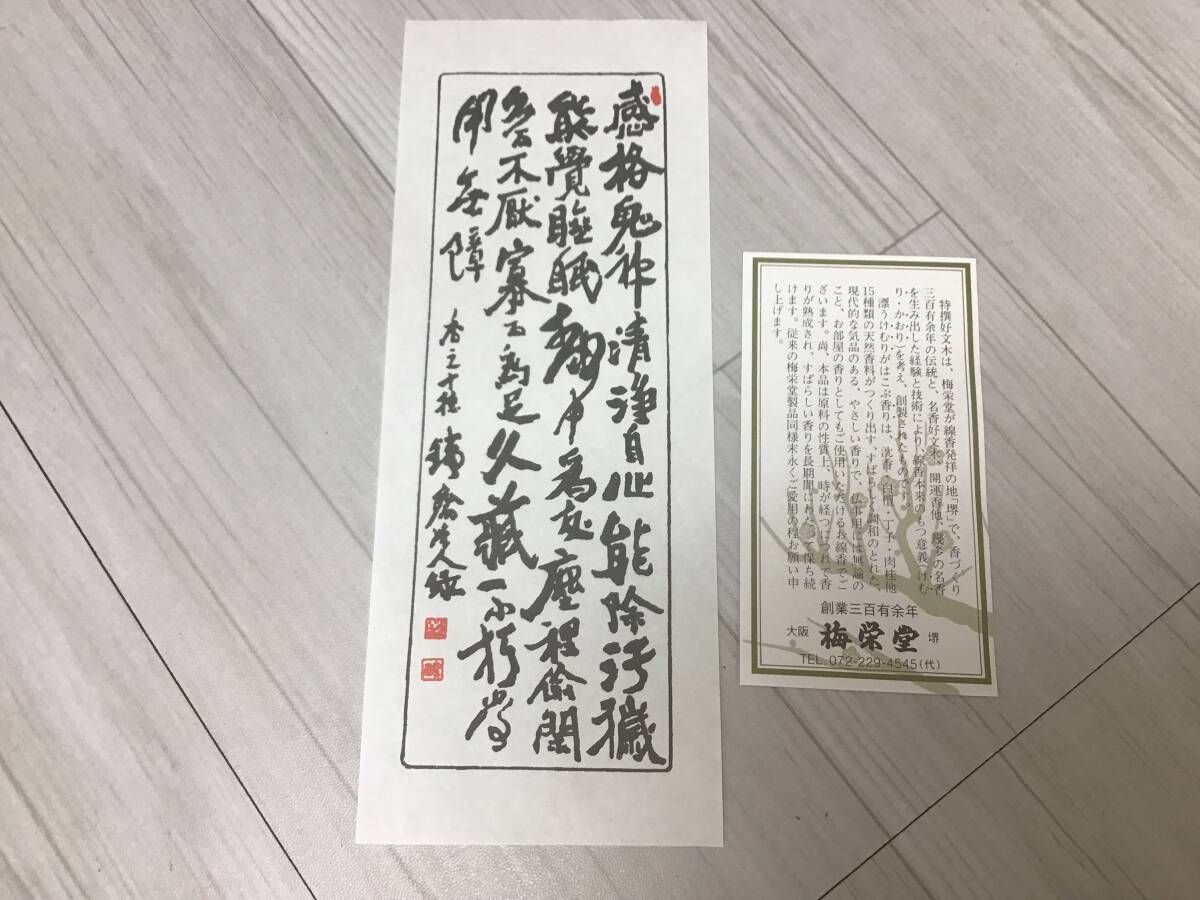 感格鬼神清淨自心能除汙穢
能覺睡眠靜中為友塵裡偸閑
多而不厭寡而為足久藏不朽常
用無障 香之十徳
特撰好文木は、梅栄堂が線香発祥の地「堺」で、香づくり
三百有余年の伝統と、名香好文木、開運香他、幾多の名香
を生み出した経験と技術により、線香本来のもつ意義(けむ
り・かおり)を考え、創製されたものです。
漂うけむりがはこぶ香りは、沈香・白檀・丁子・肉桂他
15種類の天然香料がつくり出す、すばらしく調和のとれた、
現代的な気品のある、やさしい香りで、仏事用には無論の
こと、お部屋の香りとしてもご使用いただけるお線香でご
ざいます。尚、本品は原料の性質上、時が経つにつれて香
りが熟成され、すばらしい香りを長期間にわたって保ち続
けます。従来の梅栄堂製品同様末永くご愛用の程お願い申
し上げます。
創業三百有余年
大阪 梅栄堂 堺
TEL.072-229-4545(代)